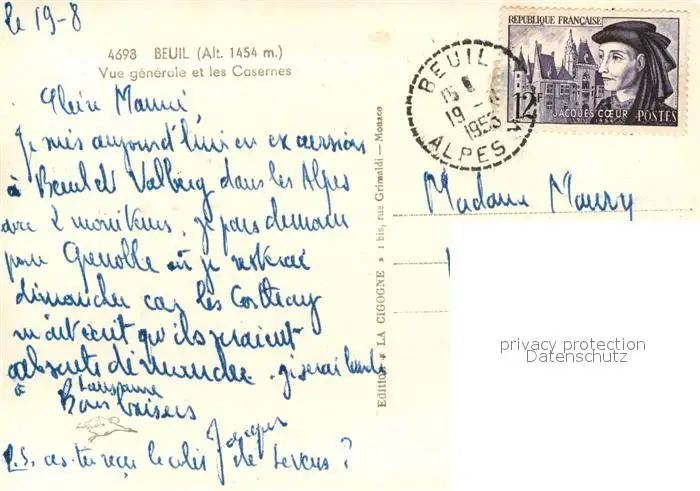 le 19-8
4698 BEUIL (Alt. 1454 m.)
Vue générale et les Casernes
REPUBLIQUE FRANÇAISE
12F
JACQUES CŒUR POSTES
BEUIL
15
19 - 8
1955
ALPES
Mamie
Je suis aujourd'hui en excursion
à Beuil et Valberg dans les Alpes
avec 2 moniteurs, je pars demain
pour Grenoble où je resterai
dimanche car les
m'ont écrit qu'ils seraient
absents dimanche. je serai lundi
à Lausanne
Bons baisers
Jacques
P.S. as-tu reçu le colis de ?
Edition LA CIGOGNE 1 bis, rue Grimaldi — Monaco
Madame Maury
privacy protection
Datenschutz